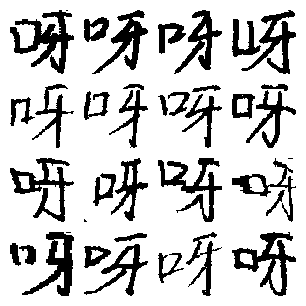 呀呀呀呀
呀呀呀呀
呀呀呀呀
呀呀呀呀